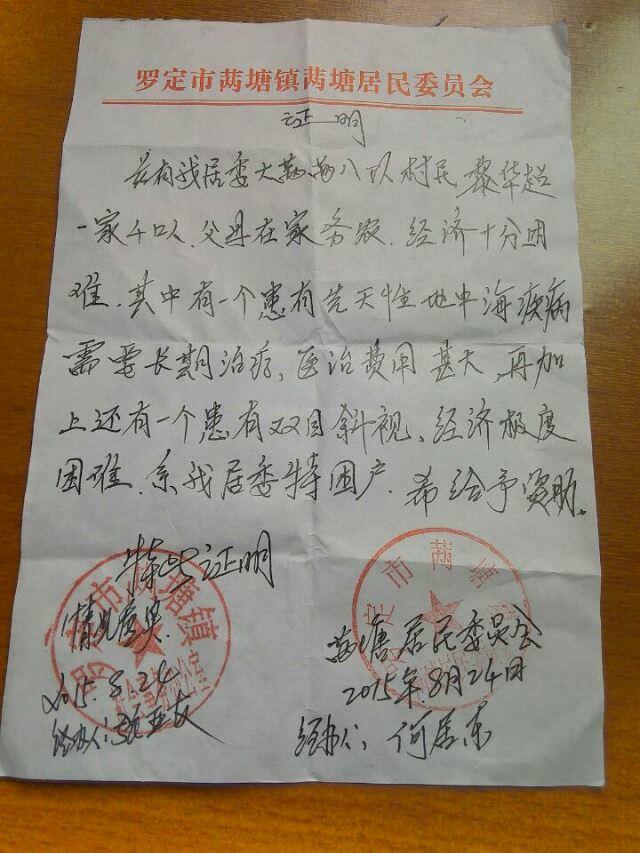 罗定市䓣塘镇䓣塘居民委员会
证明
兹有我居委大䓣䓣八队村民黎华超
一家4口以.父母在家务农.经济十分困
难.其中有一个患有先天性地中海疾病
需要长期治疗、医治费用甚大,再加
上还有一个患有双目斜视、经济极度
困难.系我居委特困户.希给予资助。
特此证明
情况属实.
2015.8.24
经办人:
䓣塘居民委员会
2015年8月24日
经办人:何居东
罗定市䓣塘
市䓣塘镇